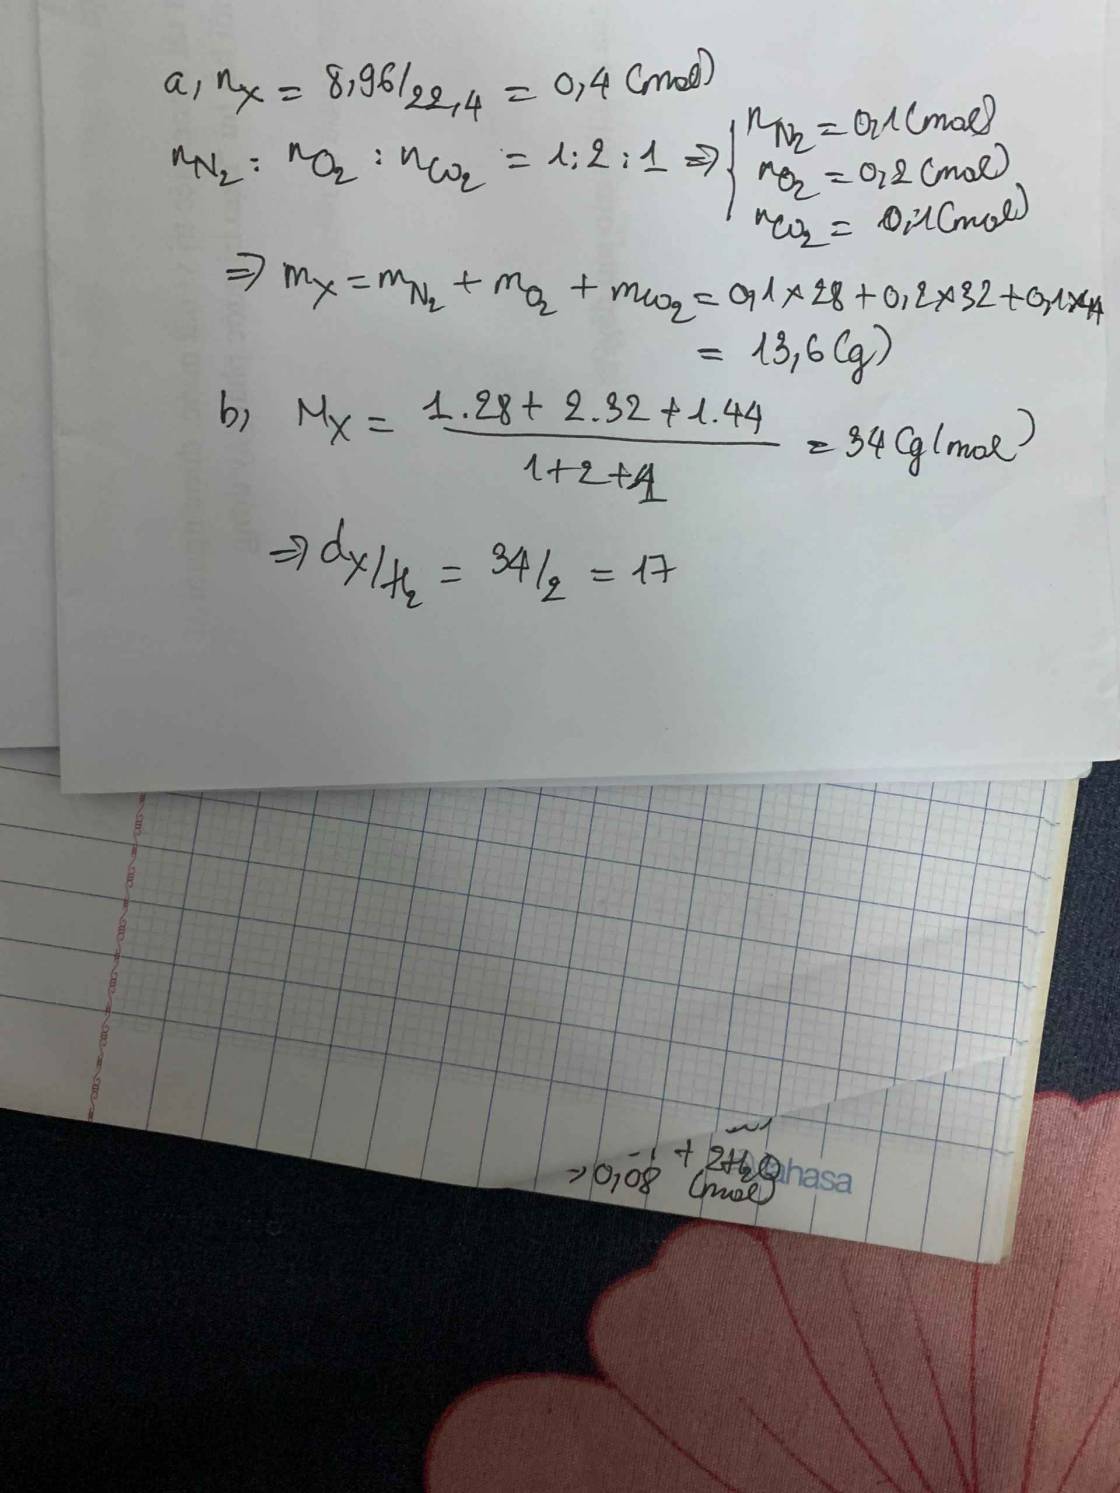 a, nX = 8,96/22,4 = 0,4 (mol)
nN2 : nO2 : nCO2 = 1:2:1 => { nN2 = 0,1 (mol)
nO2 = 0,2 (mol)
nCO2 = 0,1 (mol)
=> mX = mN2 + mO2 + mCO2 = 0,1 × 28 + 0,2 × 32 + 0,1 × 44
= 13,6 (g)
b, MX = 1.28 + 2.32 + 1.44 / 1+2+1 = 34 (g/mol)
=> dX/H2 = 34/2 = 17
+ 2H2O
=> 0,08 (mol)